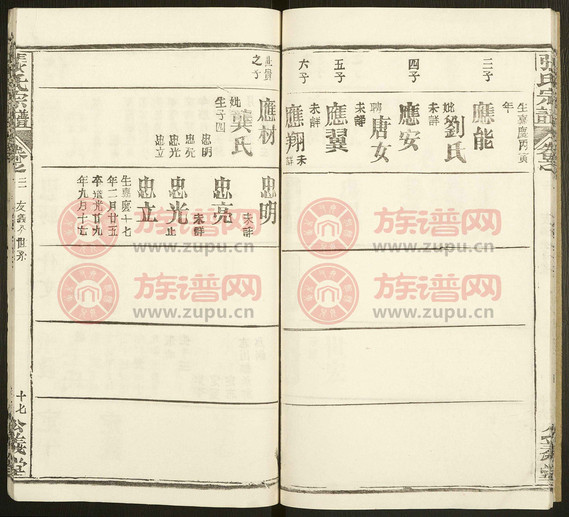 張氏宗譜
公義堂
三子
應能
生嘉慶丙寅
年
妣劉氏
未詳
四子
應安
聘唐女
五子
應翼
未詳
六子
應翔
未
詳
之子
應材
妣龔氏
生子四
忠明
忠亮
忠光
忠立
忠明
未詳
忠亮
未詳
忠光
止
忠立
生嘉慶十七
年二月廿五
卒道光廿九
年九月十七
張氏宗譜
卷之三
十七
公義堂
族谱网
www.zupu.cn
族谱网
www.zupu.cn
族谱网
www.zupu.cn
族谱网
www.zupu.cn
族谱网
www.zupu.cn
族谱网
www.zupu.cn